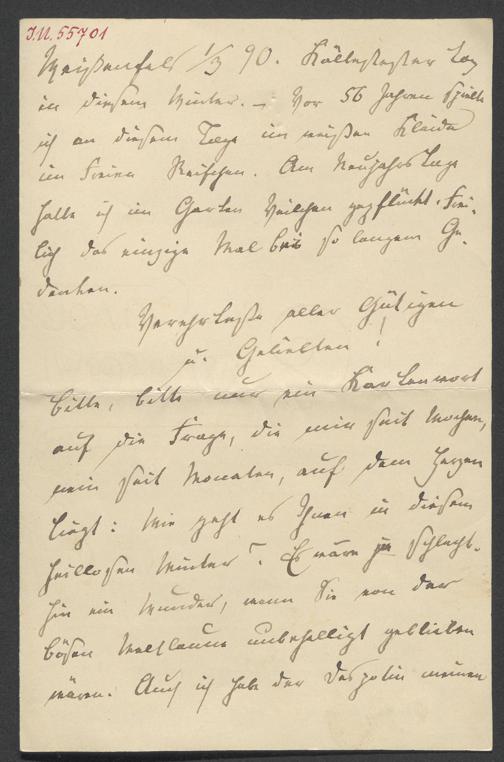 I.N. 55701
Weißenfels 1/3 90. Kältester Tag
in diesem Winter. – Vor 56 Jahren spielte
ich an diesem Tage im weißen Kleide
im Freien Reifchen. Am Neujahrstage
hatte ich im Garten Veilchen gepflückt. Frei-
lich das einzige Mal bei so langem Ge-
denken.
Verehrteste aller Gütigen
u. Geliebten!
Bitte, bitte nur ein Kartenwort
auf die Frage, die mir seit Wochen,
nein seit Monaten, auf dem Herzen
liegt: Wie geht es Ihnen in diesem
heillosen Winter? Es wäre ja schlecht-
hin ein Wunder, wenn Sie von der
bösen Weltlaune unbehelligt geblieben
wären. Auch ich habe der Despotin meinen